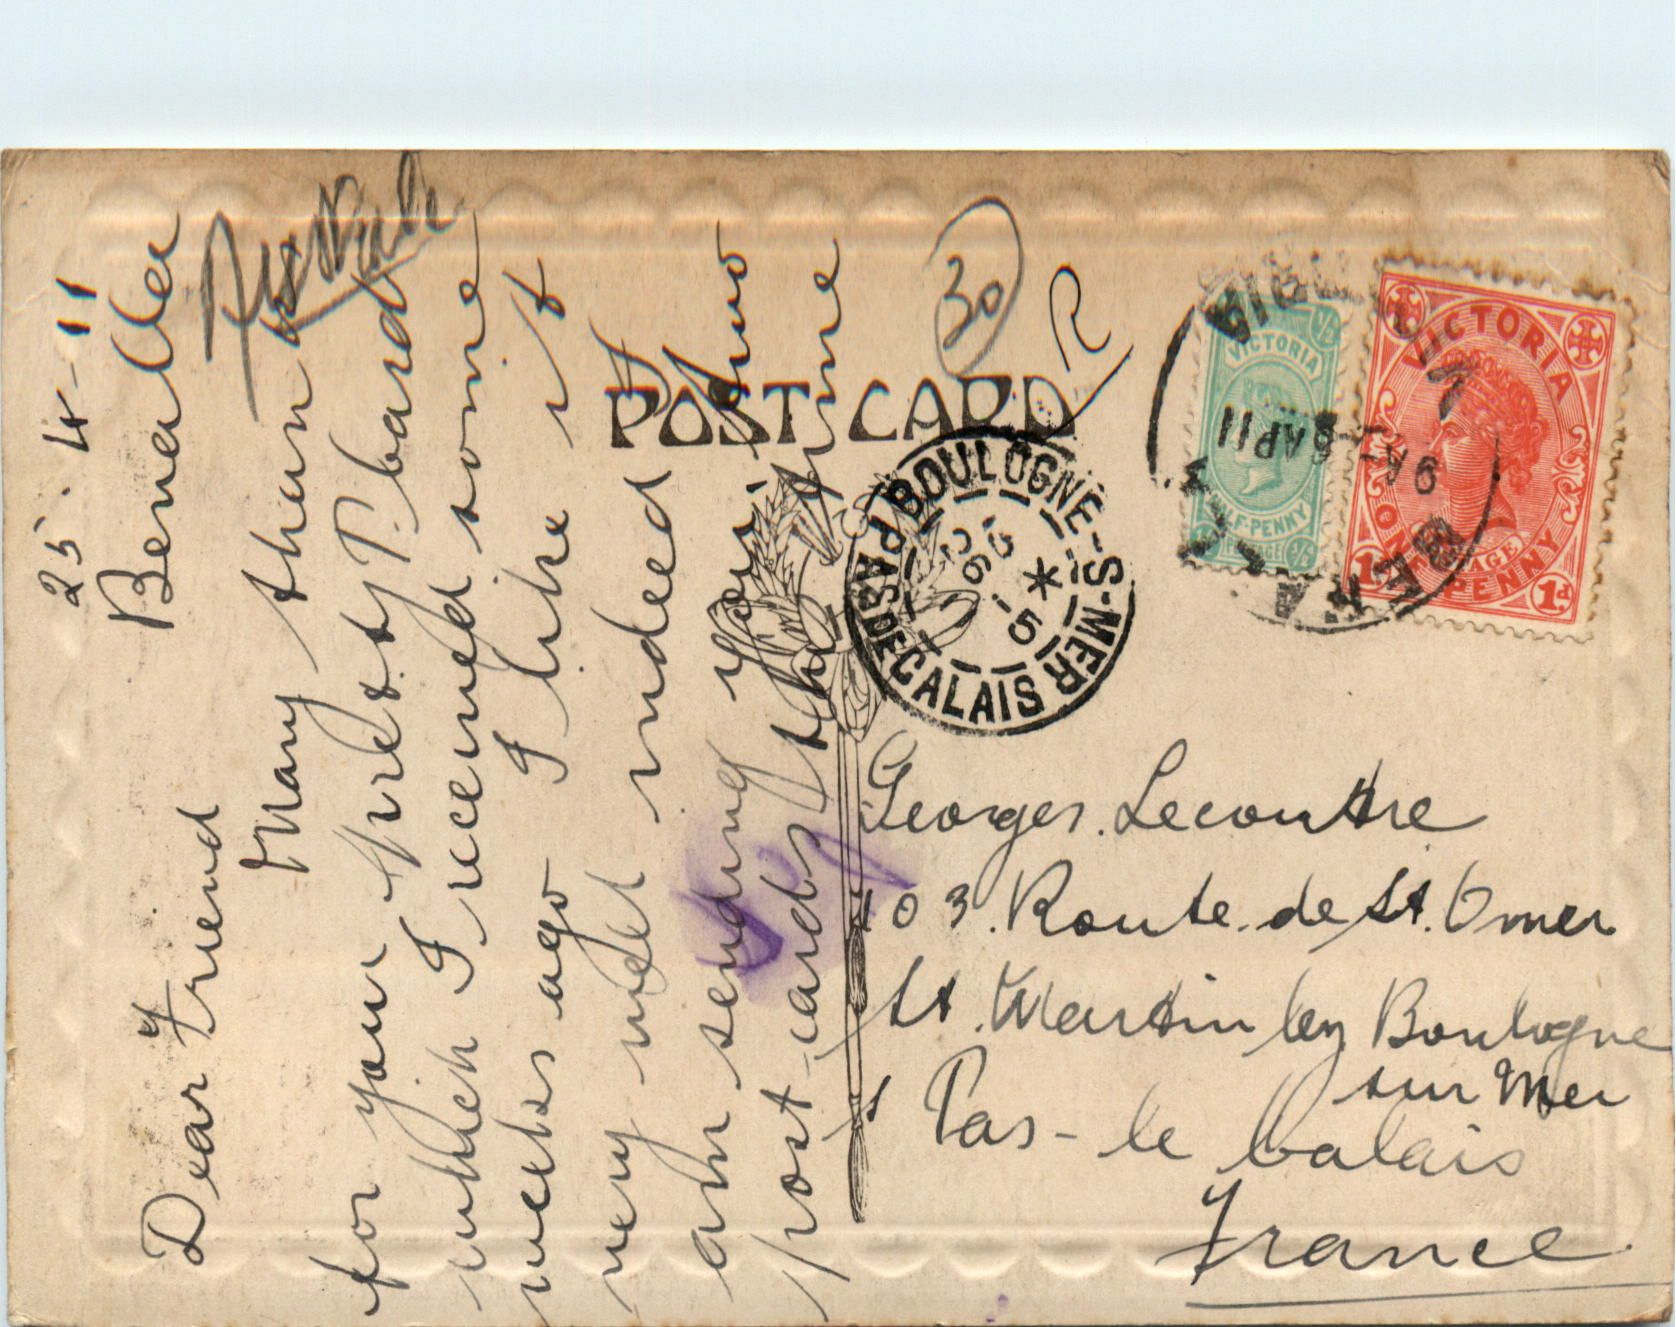 25.4-11
Benalla
Dear Friend
Many thanks
for your pretty P. card
which I received some
weeks ago I like it
very well indeed I
am sending you two
post-cards this time
POST CARD
30
R
VICTORIA
½
HALF-PENNY
VICTORIA
ONE PENNY
1d
BENALLA
VICTORIA
9 A
26 AP 11
7
BOULOGNE-S-MER
PAS DE CALAIS
5
Georges. Lecoutre
103. Route. de St. Omer
St. Martin ley Boulogne
sur Mer
Pas-de Calais
France